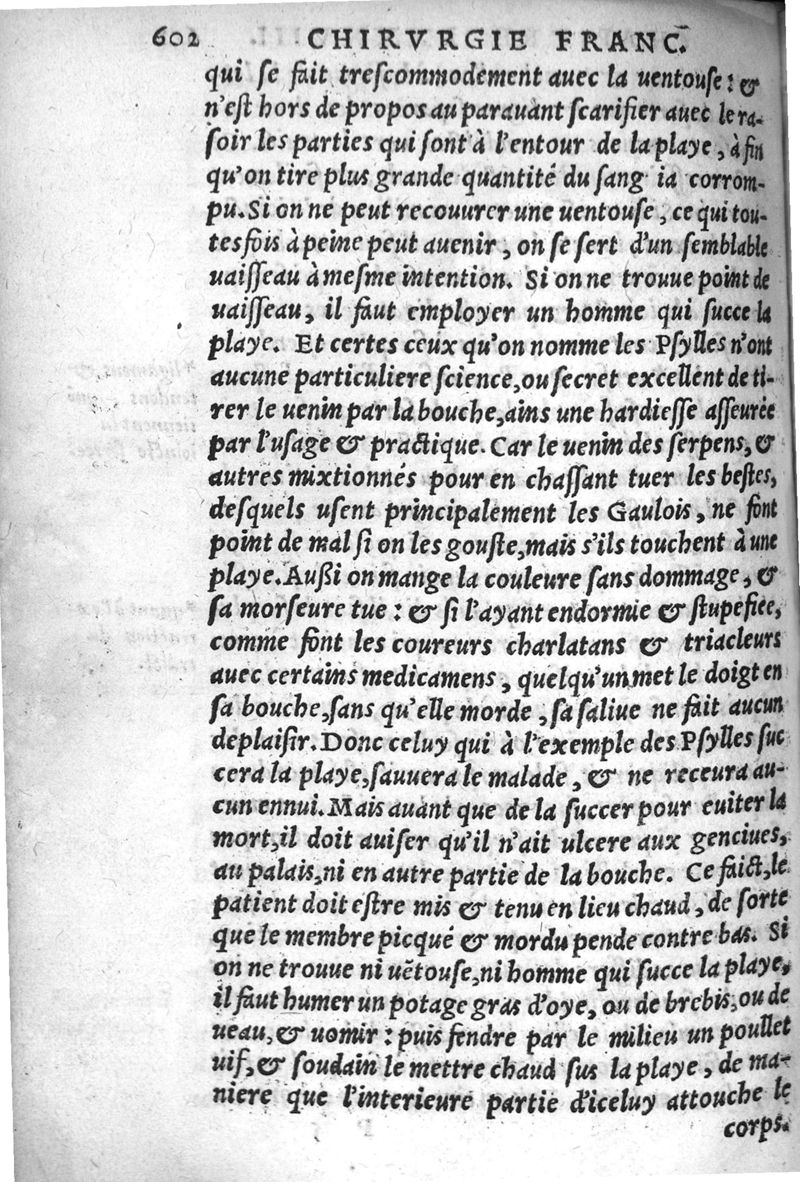 602 CHIRVRGIE FRANC.
qui se fait trescommodement auec la uentouse: &
n'est hors de propos au parauant scarifier auec le ra-
soir les parties qui sont à l'entour de la playe, à fin
qu'on tire plus grande quantité du sang ia corrom-
pu. Si on ne peut recouurer une uentouse, ce qui tou-
tesfois à peine peut auenir, on se sert d'un semblable
uaisseau à mesme intention. Si on ne trouue point de
uaisseau, il faut employer un homme qui succe la
playe. Et certes ceux qu'on nomme les Psylles n'ont
aucune particuliere science, ou secret excellent de ti-
rer le uenin par la bouche, ains une hardiesse asseurée
par l'usage & practique. Car le uenin des serpens, &
autres mixtionnés pour en chassant tuer les bestes,
desquels usent principalement les Gaulois, ne font
point de mal si on les gouste, mais s'ils touchent à une
playe. Aussi on mange la couleure sans dommage, &
sa morseure tue: & si l'ayant endormie & stupefiee,
comme font les coureurs charlatans & triacleurs
auec certains medicamens, quelqu'un met le doigt en
sa bouche, sans qu'elle morde, sa saliue ne fait aucun
deplaisir. Donc celuy qui à l'exemple des Psylles suc
cera la playe, sauuera le malade, & ne receura au-
cun ennui. Mais auant que de la succer pour euiter la
mort, il doit auiser qu'il n'ait ulcere aux genciues,
au palais, ni en autre partie de la bouche. Ce faict, le
patient doit estre mis & tenu en lieu chaud, de sorte
que le membre picqué & mordu pende contre bas. Si
on ne trouue ni uẽtouse, ni homme qui succe la playe,
il faut humer un potage gras d'oye, ou de brebis, ou de
ueau, & uomir: puis fendre par le milieu un poullet
uif, & soudain le mettre chaud sus la playe, de ma-
niere que l'interieure partie d'iceluy attouche le
corps.